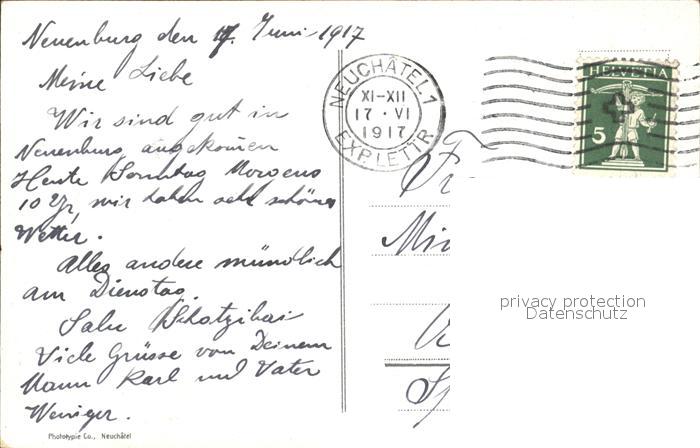 Neuenburg den 17. Juni 1917
Meine Liebe
Wir sind gut in
Neuenburg angekommen
Heute Sonntag Morgens
10 Uhr, wir haben sehr schönes
Wetter.
Alles andere mündlich
am Dienstag.
Salu Schatzibai
Viele Grüsse von Deinem
Mann Karl und Vater
Weniger.
Phototypie Co., Neuchâtel
NEUCHÂTEL 1
XI-XII
17 · VI
1917
EXP. LETTR.
HELVETIA
5
privacy protection
Datenschutz